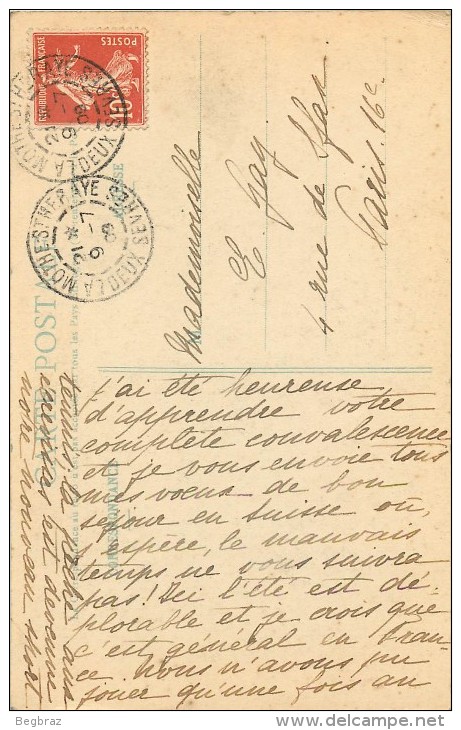 REPUBLIQUE FRANÇAISE
POSTES
10
LA MOTHE ST HERAYE
DEUX SEVRES
21
9
09
CARTE POSTALE
Mademoiselle
E. Gay
4 rue de Sfax
Paris. 16e
J'ai été heureuse
d'apprendre votre
complète convalescence
et je vous envoie tous
mes voeux de bon
séjour en Suisse où,
j'espère, le mauvais
temps ne vous suivra
pas! Ici l'été est dé-
plorable et je crois que
c'est général en Fran-
ce. Nous n'avons pu
jouer qu'une fois au
tennis, la pêche aux
est devenue
notre nouveau sport
Begbraz
http://www.delcampe.net